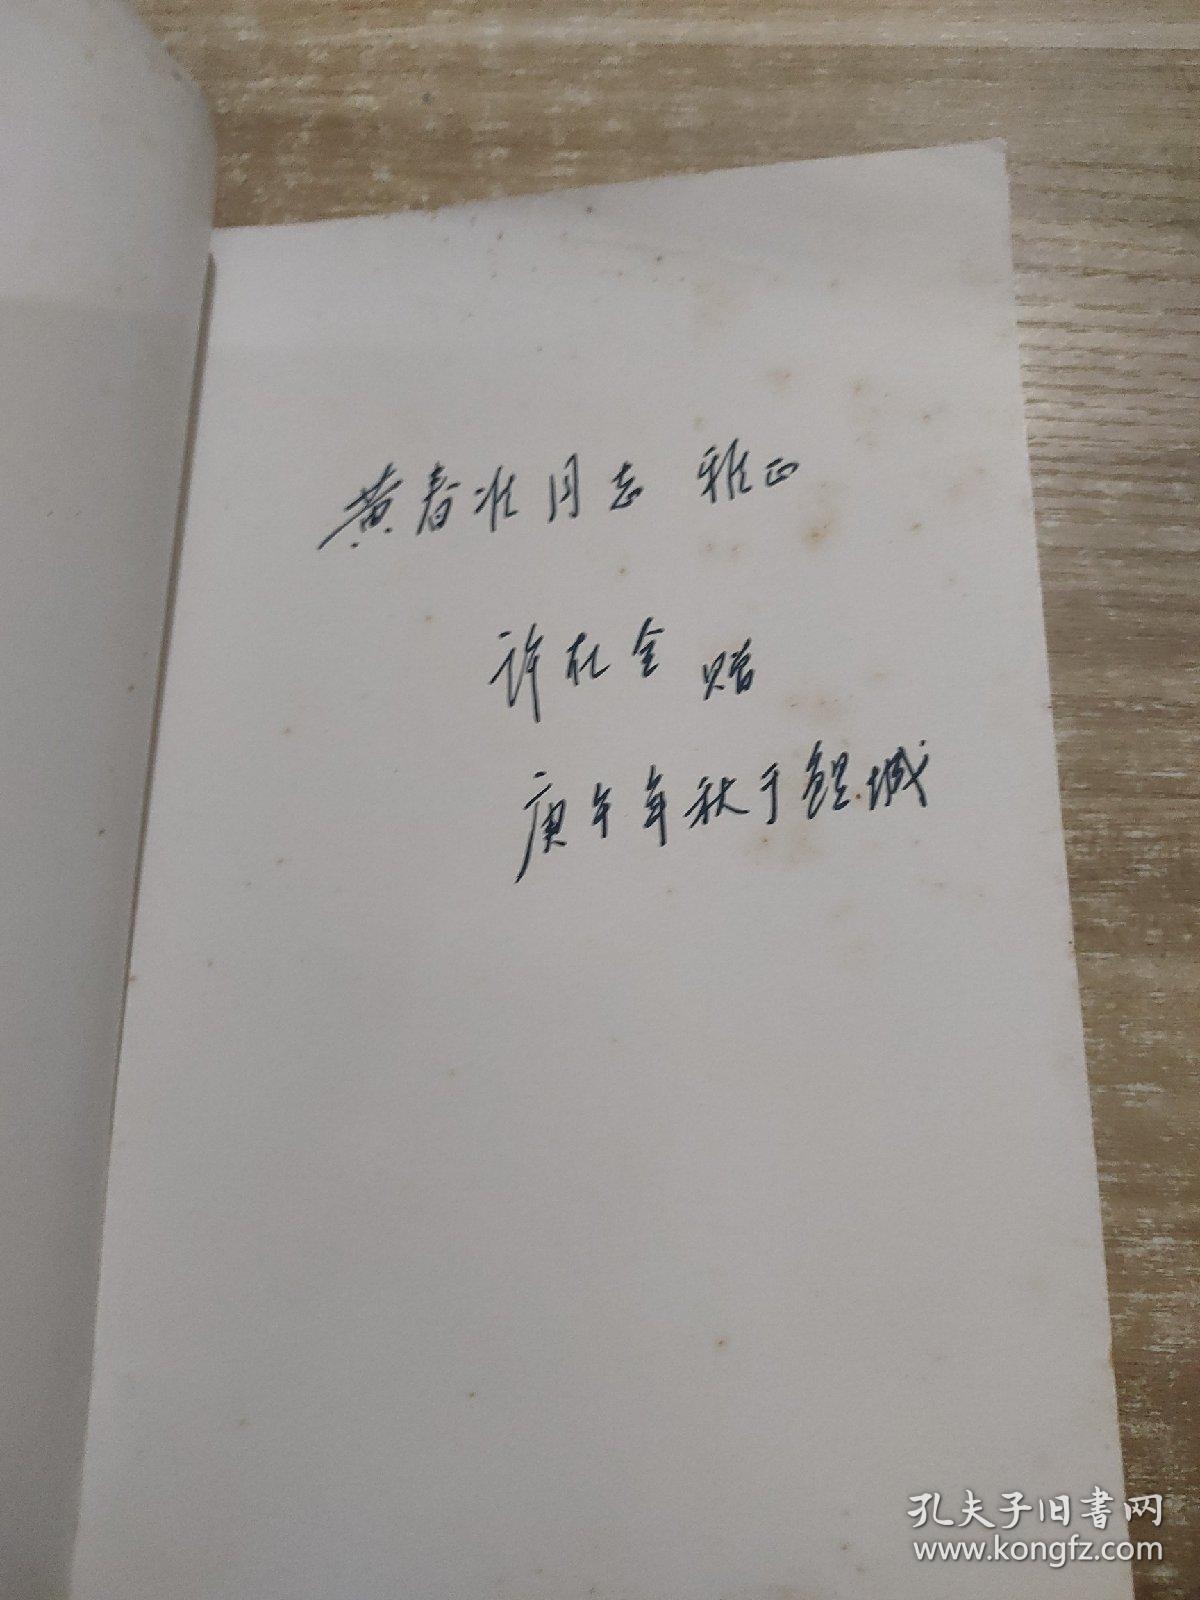 黄春准同志 雅正
许在全 赠
庚午年秋于鲤城
孔夫子旧书网
www.kongfz.com